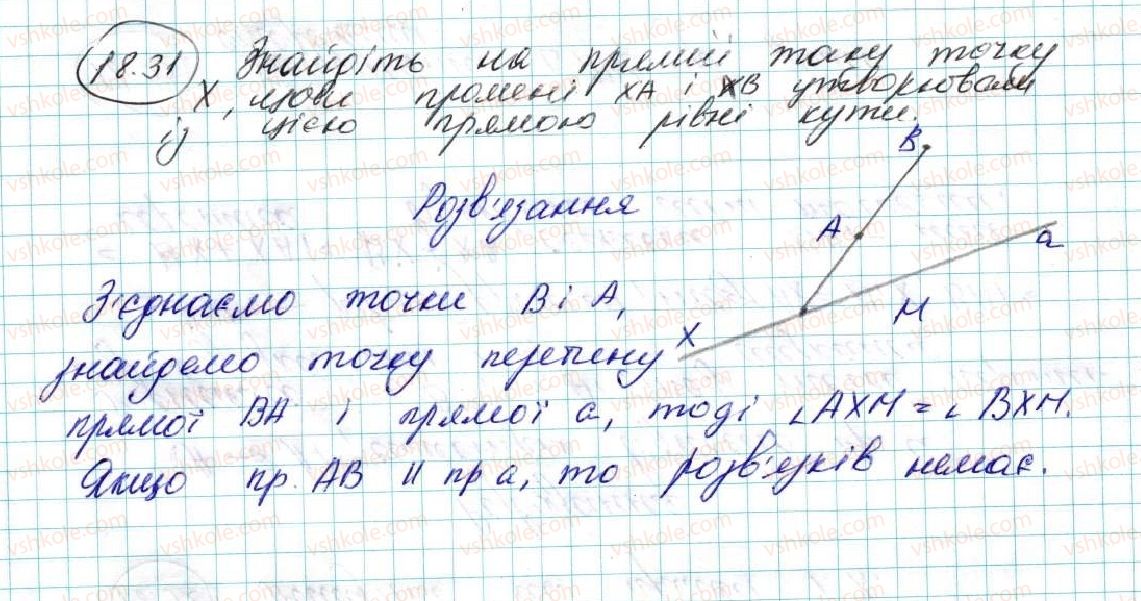 18.31 Знайдіть на прямій таку точку
X, щоби промені XA і XB утворювали
із цією прямою рівні кути.
B
Розв'язання
A
a
З'єднаємо точки B і A,
M
X
знайдемо точку перетину
прямої BA і прямої a, тоді ∠AXM = ∠BXM.
Якщо пр. AB || пр a, то розв'язків немає.